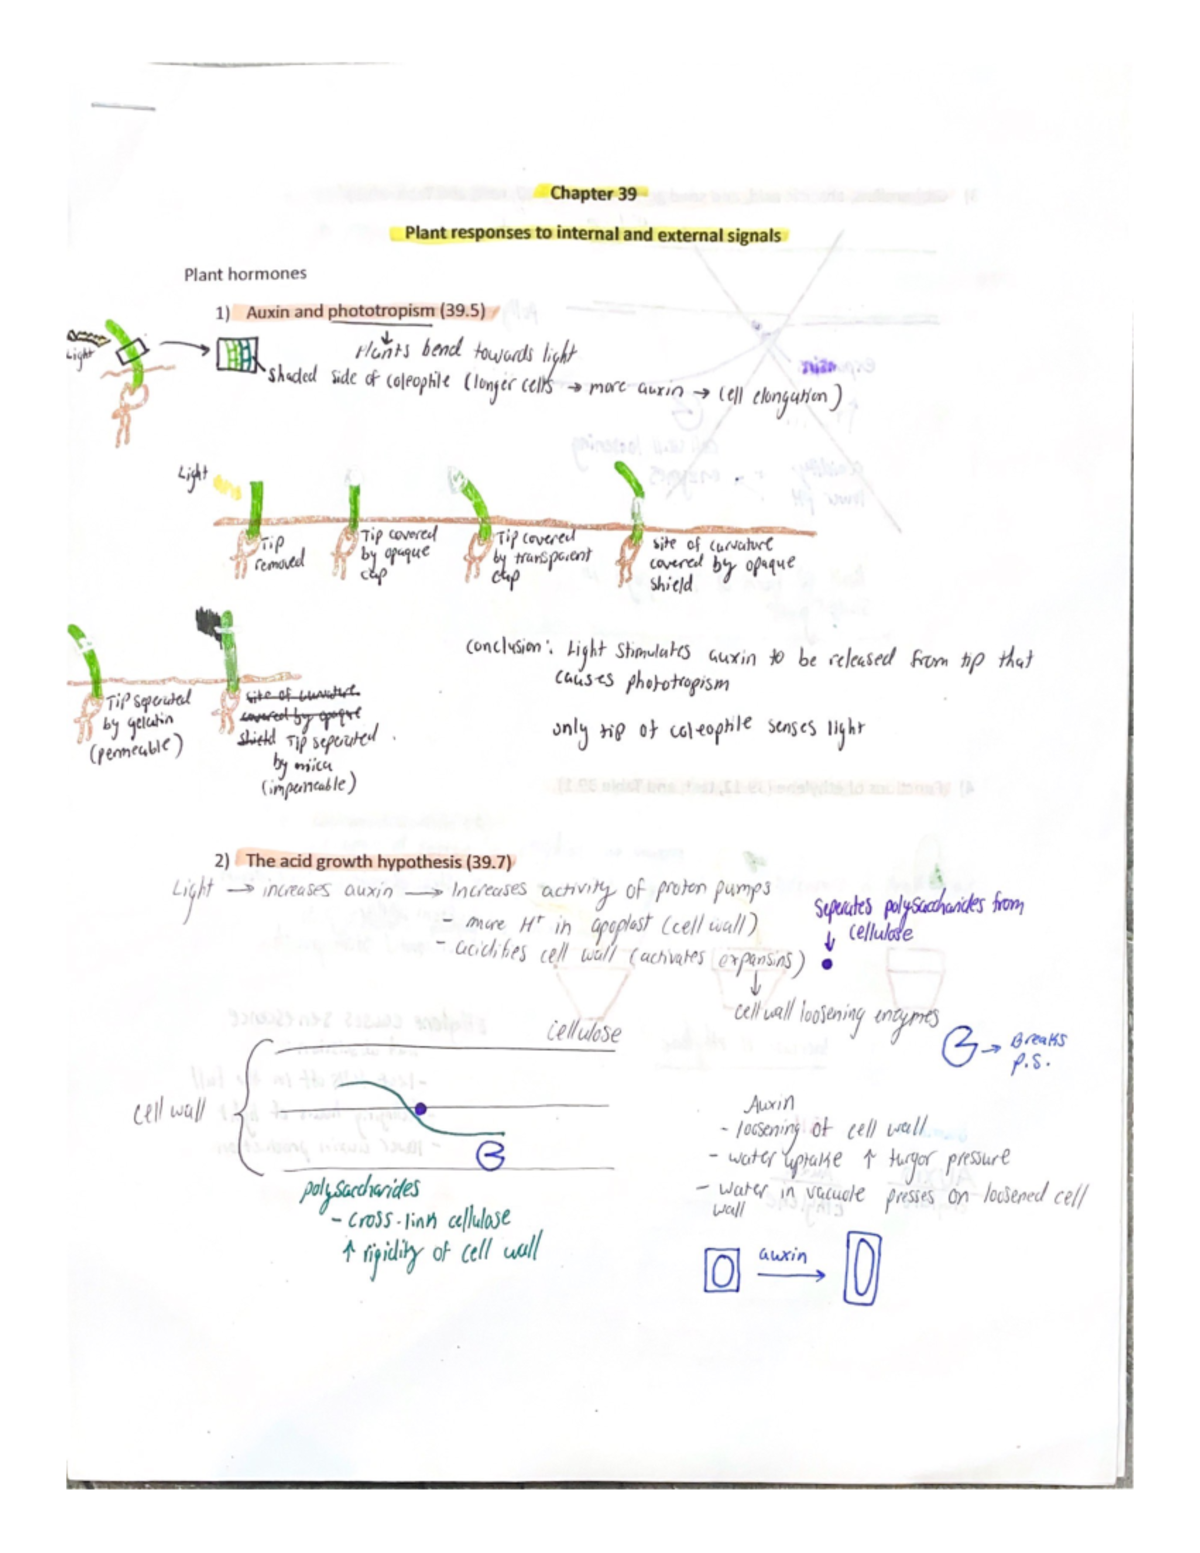 Chapter 39
Plant responses to internal and external signals
Plant hormones
1) Auxin and phototropism (39.5)
Light
Plants bend towards light
shaded side of coleophile (longer cells → more auxin → cell elongation)
Light
Tip
removed
Tip covered
by opaque
cap
Tip covered
by transparent
cap
site of curvature
covered by opaque
shield
Tip seperated
by gelatin
(permeable)
site of curvature
covered by opaque
shield Tip seperated
by mica
(impermeable)
Conclusion: Light stimulates auxin to be released from tip that
causes phototropism
only tip of coleophile senses light
2) The acid growth hypothesis (39.7)
Light → increases auxin → Increases activity of proton pumps
- more H+ in apoplast (cell wall)
- acidifies cell wall (activates expansins)
seperates polysaccharides from
↓ cellulose
↓
cell wall loosening enzymes
→ Breaks
P.S.
cellulose
cell wall
polysaccharides
- cross-link cellulose
↑ rigidity of cell wall
Auxin
- loosening of cell wall
- water uptake ↑ turgor pressure
- water in vacuole presses on loosened cell
wall
auxin